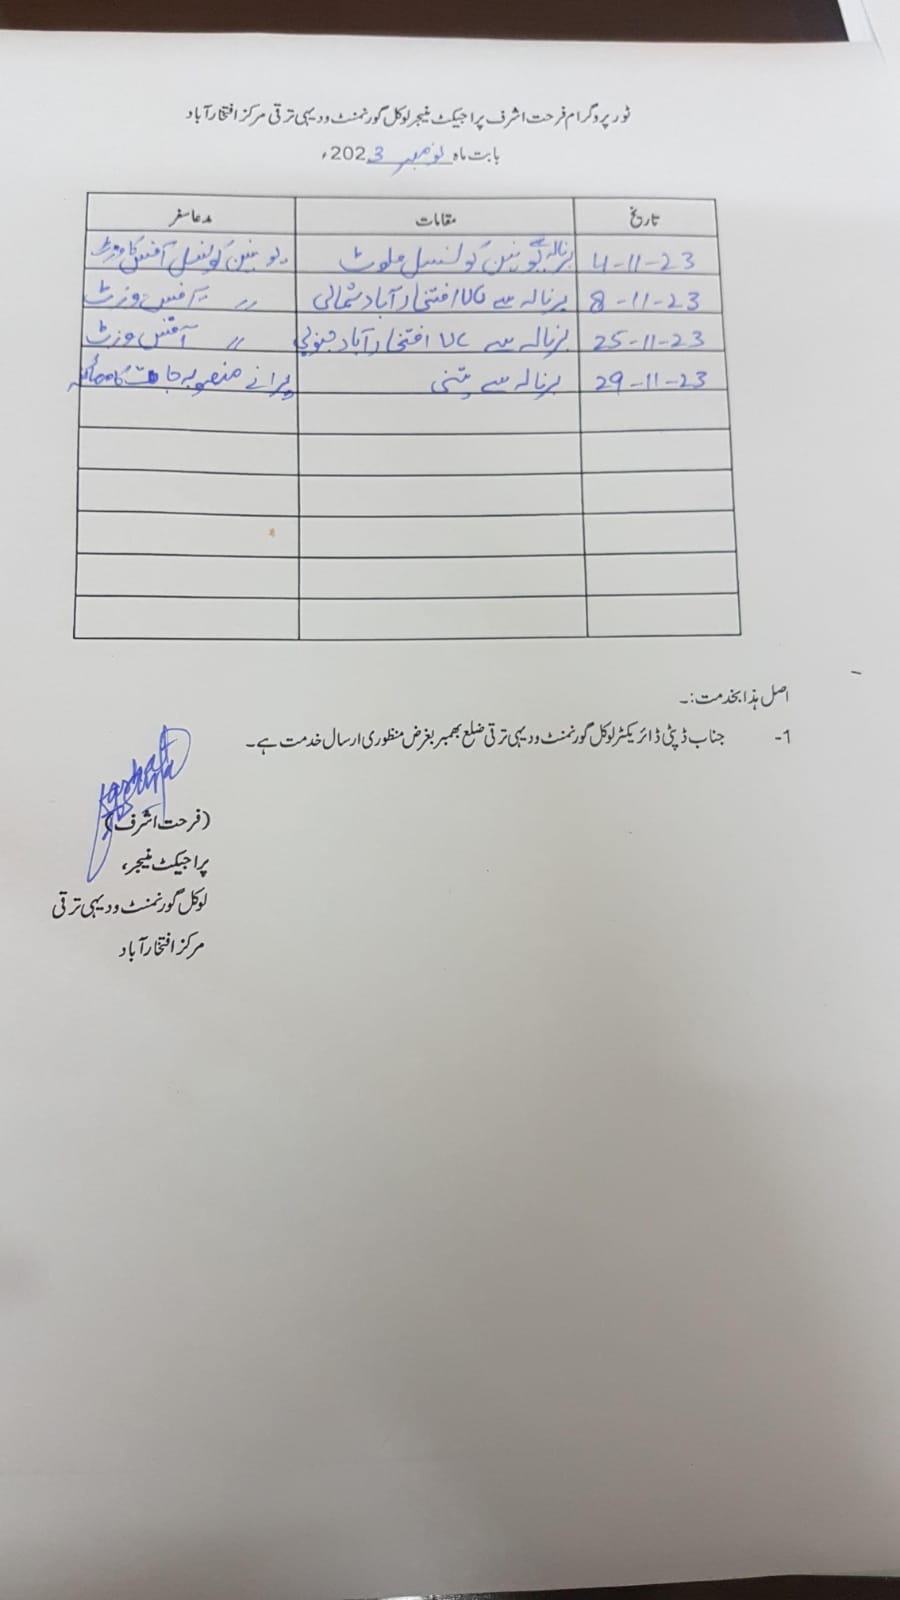 ٹور پروگرام فرحت اشرف پراجیکٹ منیجر لوکل گورنمنٹ و دیہی ترقی مرکز افتخار آباد
بابت ماہ نومبر 2023ء
تاریخ مقامات مدعا سفر
4-11-23 برنالہ سے یونین کونسل ملوٹ یونین کونسل آفس کا وزٹ
8-11-23 برنالہ سے UC افتخار آباد شمالی // آفس وزٹ
25-11-23 برنالہ سے UC افتخار آباد جنوبی // آفس وزٹ
29-11-23 برنالہ سے پتنی پرانے منصوبہ جات کا معائنہ
اصل ہذا بخدمت:۔
1- جناب ڈپٹی ڈائریکٹر لوکل گورنمنٹ و دیہی ترقی ضلع بھمبر بغرض منظوری ارسال خدمت ہے۔
(فرحت اشرف)
پراجیکٹ منیجر،
لوکل گورنمنٹ و دیہی ترقی
مرکز افتخار آباد